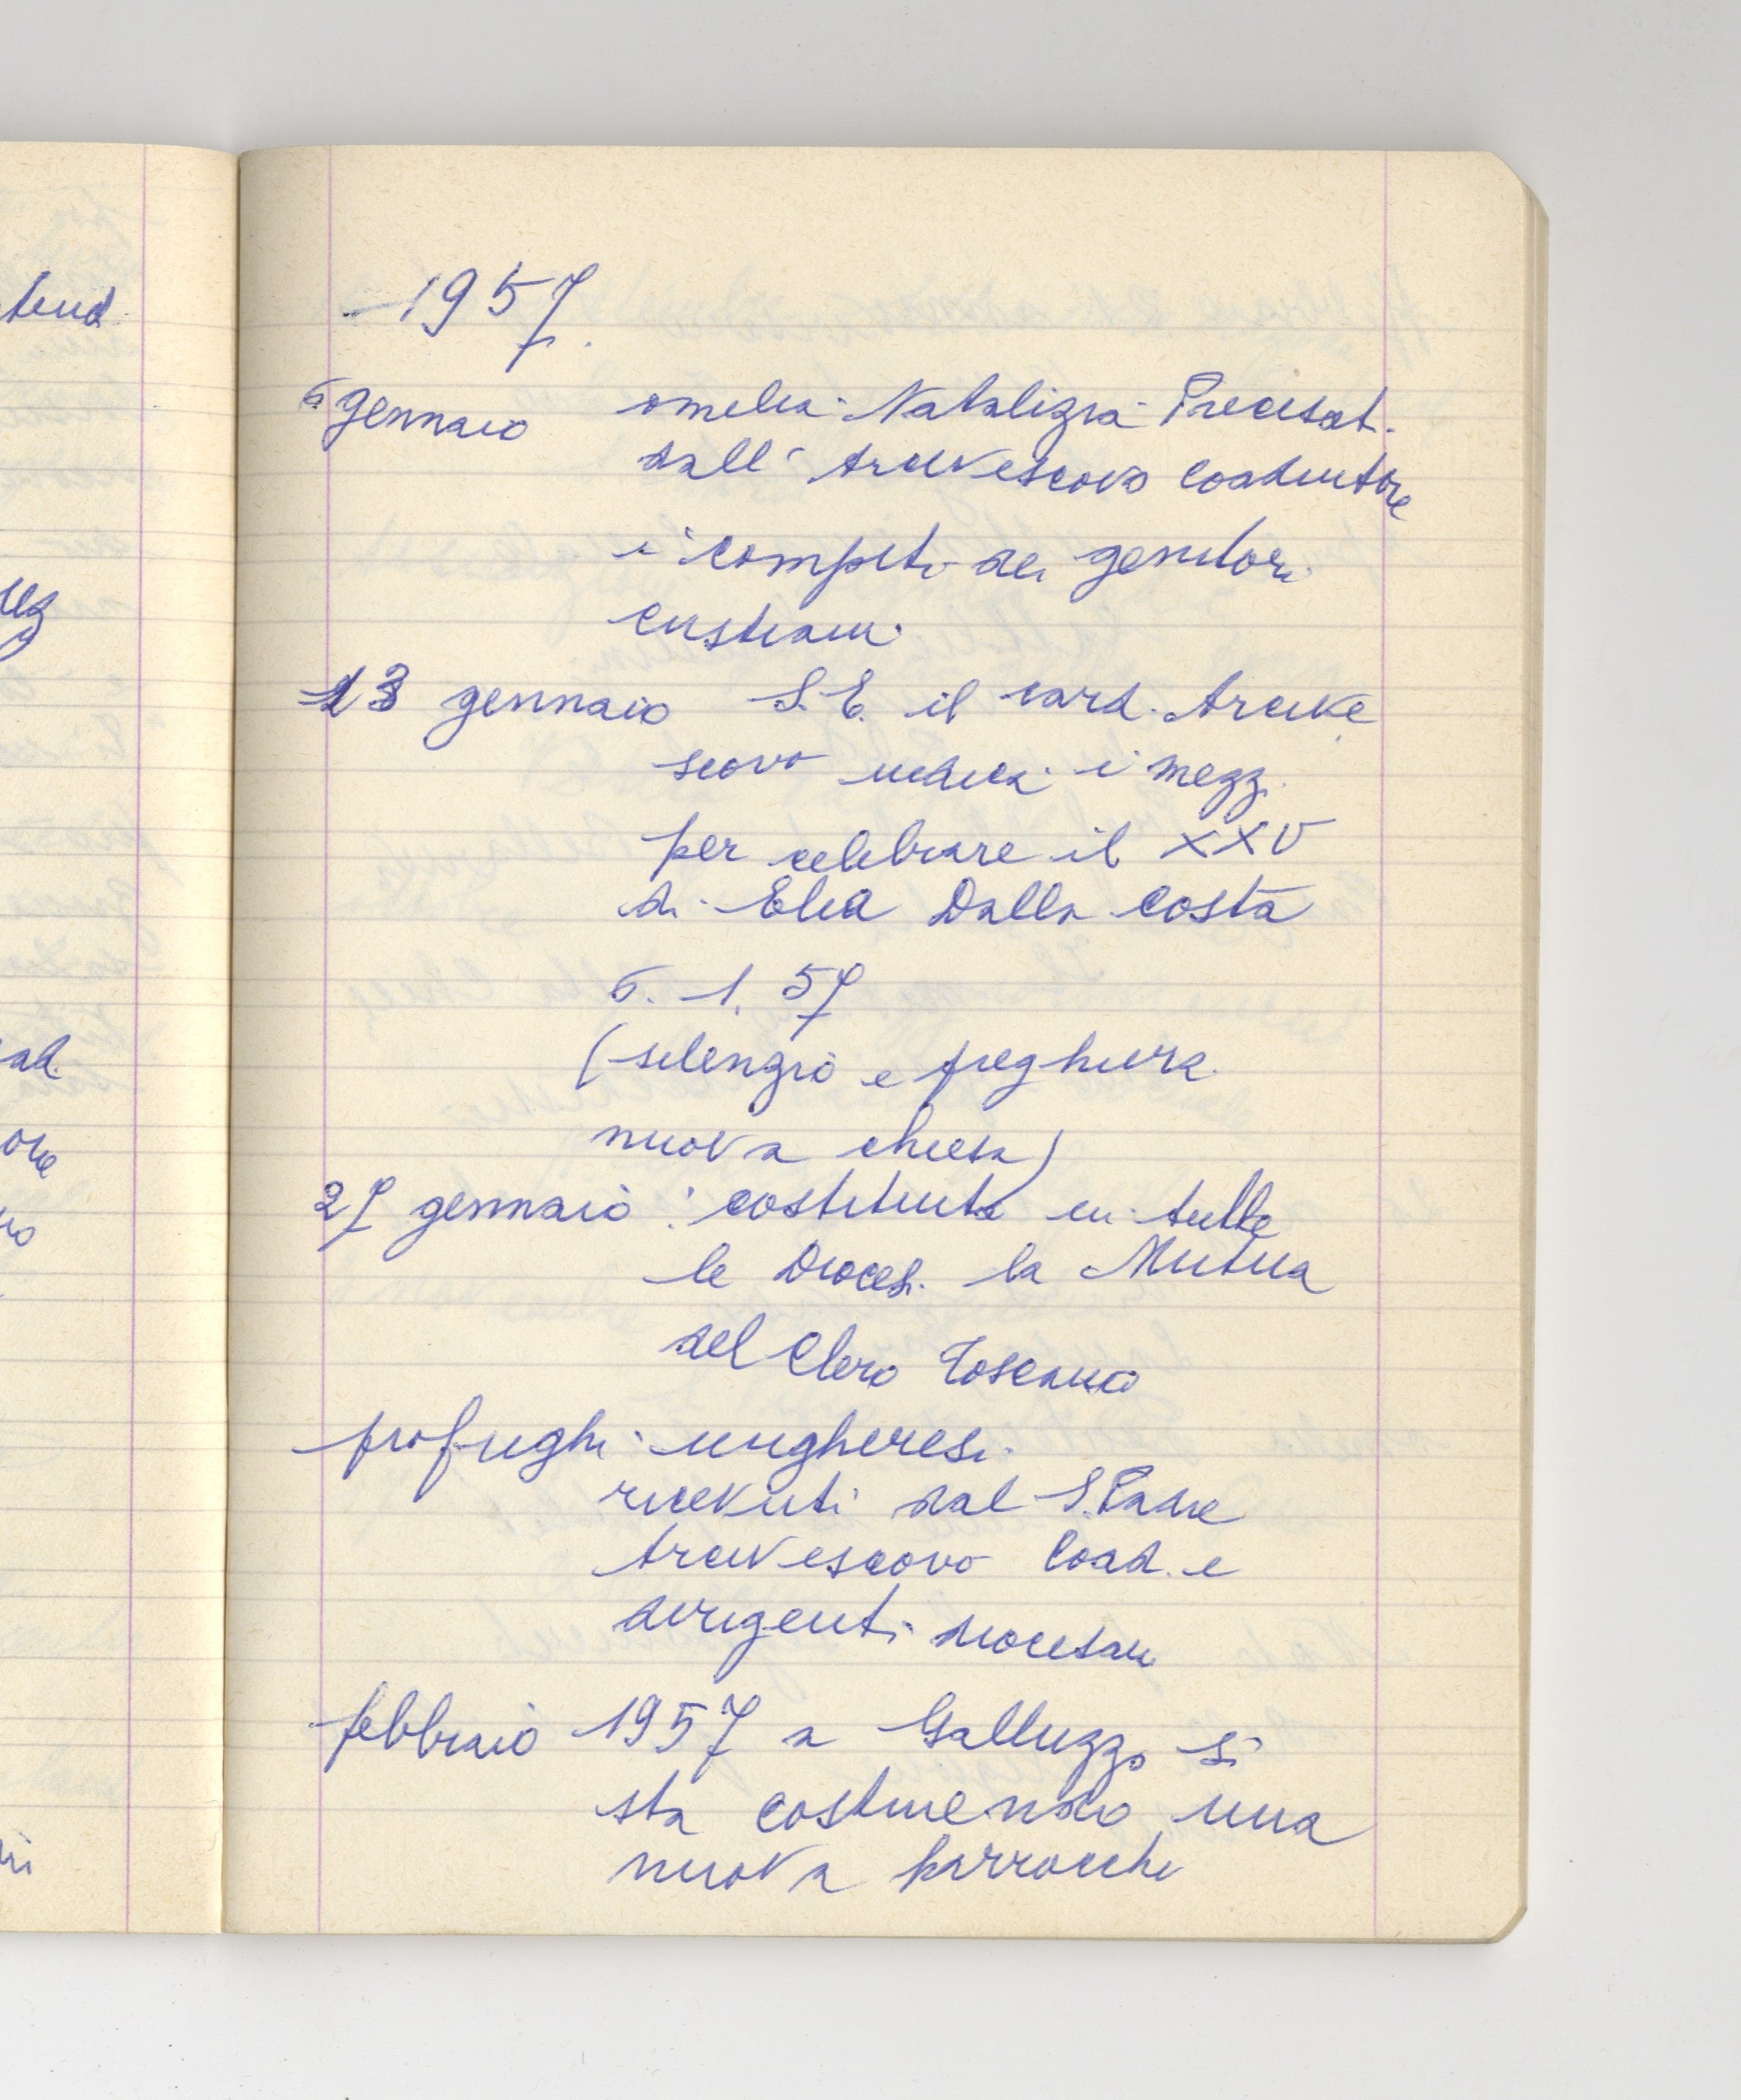 1957.
6 gennaio omelia Natalizia Precisat.
dall'Arcivescovo Coadiutore
i compiti dei genitori
cristiani.
13 gennaio S.E. il card. Arcive
scovo indica i mezzi
per celebrare il XXV
di Elia Dalla Costa
6. 1. 57
(silenzio e preghiera
nuova chiesa)
27 gennaio : costituita in tutte
le Diocesi la Mutua
del Clero Toscano
profughi ungheresi
ricevuti dal S. Padre
Arcivescovo Coad. e
dirigenti diocesani
febbraio 1957 a Galluzzo si
sta costruendo una
nuova parrocchi
tend
ad.
ore